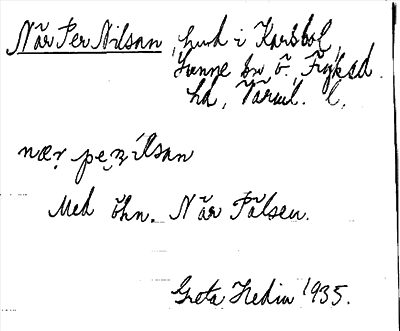 När Per Nilsan, hmd i Karsbol,
Sunne sn, ö. Fryksd.
hd, Värml. l.
nær pe̤ṛílsan
Med öhn. När Pålsen.
Greta Hedin 1935.